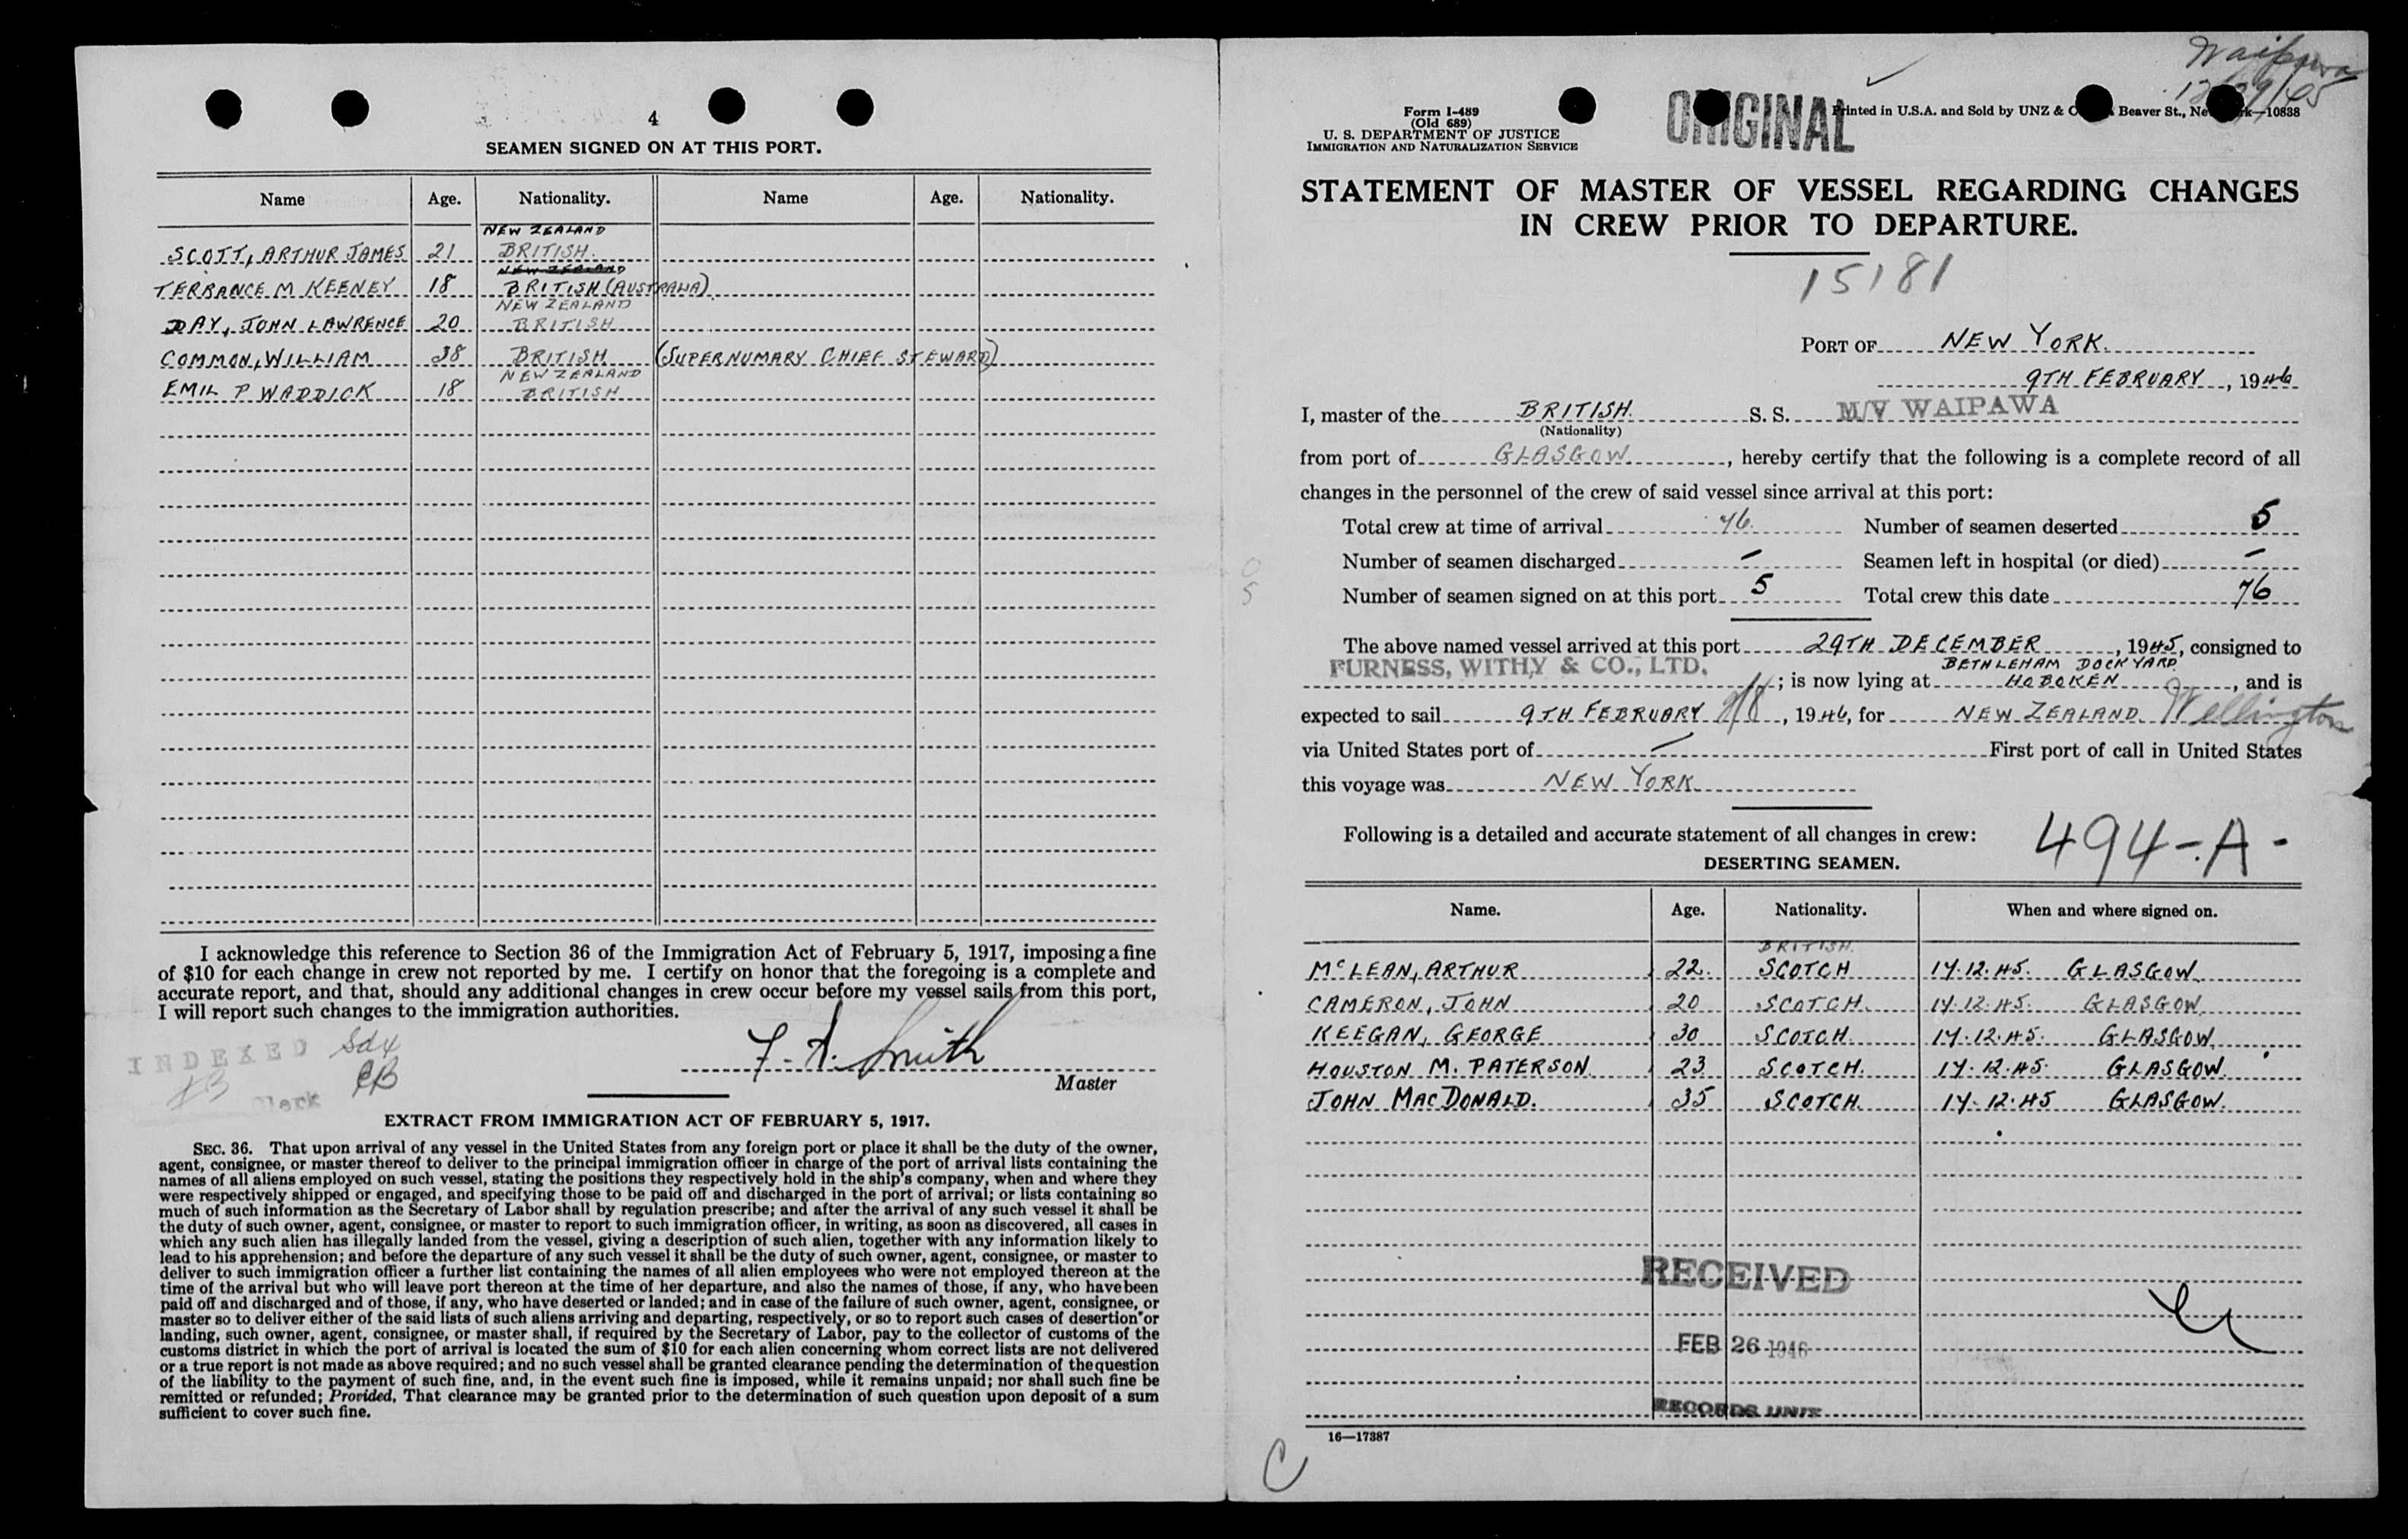 4
SEAMEN SIGNED ON AT THIS PORT.
Name Age. Nationality. Name Age. Nationality.
NEW ZEALAND
SCOTT, ARTHUR JAMES 21 BRITISH.
NEW ZEALAND
TERRANCE M KEENEY 18 BRITISH (AUSTRALIA)
NEW ZEALAND
DAY, JOHN LAWRENCE 20 BRITISH
COMMON, WILLIAM 38 BRITISH (SUPERNUMARY CHIEF STEWARD)
NEW ZEALAND
EMIL P WADDICK 18 BRITISH
I acknowledge this reference to Section 36 of the Immigration Act of February 5, 1917, imposing a fine
of $10 for each change in crew not reported by me. I certify on honor that the foregoing is a complete and
accurate report, and that, should any additional changes in crew occur before my vessel sails from this port,
I will report such changes to the immigration authorities.
INDEXED
Clerk
F. A. Smith
Master
EXTRACT FROM IMMIGRATION ACT OF FEBRUARY 5, 1917.
SEC. 36. That upon arrival of any vessel in the United States from any foreign port or place it shall be the duty of the owner,
agent, consignee, or master thereof to deliver to the principal immigration officer in charge of the port of arrival lists containing the
names of all aliens employed on such vessel, stating the positions they respectively hold in the ship's company, when and where they
were respectively shipped or engaged, and specifying those to be paid off and discharged in the port of arrival; or lists containing so
much of such information as the Secretary of Labor shall by regulation prescribe; and after the arrival of any such vessel it shall be
the duty of such owner, agent, consignee, or master to report to such immigration officer, in writing, as soon as discovered, all cases in
which any such alien has illegally landed from the vessel, giving a description of such alien, together with any information likely to
lead to his apprehension; and before the departure of any such vessel it shall be the duty of such owner, agent, consignee, or master to
deliver to such immigration officer a further list containing the names of all alien employees who were not employed thereon at the
time of the arrival but who will leave port thereon at the time of her departure, and also the names of those, if any, who have been
paid off and discharged and of those, if any, who have deserted or landed; and in case of the failure of such owner, agent, consignee, or
master so to deliver either of the said lists of such aliens arriving and departing, respectively, or so to report such cases of desertion or
landing, such owner, agent, consignee, or master shall, if required by the Secretary of Labor, pay to the collector of customs of the
customs district in which the port of arrival is located the sum of $10 for each alien concerning whom correct lists are not delivered
or a true report is not made as above required; and no such vessel shall be granted clearance pending the determination of the question
of the liability to the payment of such fine, and, in the event such fine is imposed, while it remains unpaid; nor shall such fine be
remitted or refunded; Provided, That clearance may be granted prior to the determination of such question upon deposit of a sum
sufficient to cover such fine.
Waipawa
12/29/45
Form I-489
(Old 689)
U. S. DEPARTMENT OF JUSTICE
IMMIGRATION AND NATURALIZATION SERVICE
ORIGINAL
Printed in U.S.A. and Sold by UNZ & Beaver St., —10838
STATEMENT OF MASTER OF VESSEL REGARDING CHANGES
IN CREW PRIOR TO DEPARTURE.
15181
PORT OF NEW YORK.
9TH FEBRUARY, 1946
I, master of the BRITISH. S. S. M/V WAIPAWA
(Nationality)
from port of GLASGOW, hereby certify that the following is a complete record of all
changes in the personnel of the crew of said vessel since arrival at this port:
Total crew at time of arrival 76. Number of seamen deserted 5
Number of seamen discharged — Seamen left in hospital (or died) —
Number of seamen signed on at this port 5 Total crew this date 76
The above named vessel arrived at this port 29TH DECEMBER, 1945, consigned to
FURNESS, WITHY & CO., LTD. BETHLEHAM DOCKYARD
; is now lying at HOBOKEN, and is
expected to sail 9TH FEBRUARY 2/8, 1946, for NEW ZEALAND Wellington
via United States port of — First port of call in United States
this voyage was NEW YORK
Following is a detailed and accurate statement of all changes in crew:
494-A-
DESERTING SEAMEN.
Name. Age. Nationality. When and where signed on.
BRITISH.
McLEAN, ARTHUR 22. SCOTCH 17.12.45. GLASGOW.
CAMERON, JOHN 20 SCOTCH. 17.12.45. GLASGOW.
KEEGAN, GEORGE 30 SCOTCH. 17.12.45. GLASGOW.
HOUSTON M. PATERSON 23 SCOTCH. 17.12.45. GLASGOW.
JOHN MACDONALD. 35 SCOTCH. 17.12.45 GLASGOW.
RECEIVED
FEB 26 1946
RECORDS UNIT
16—17387
C